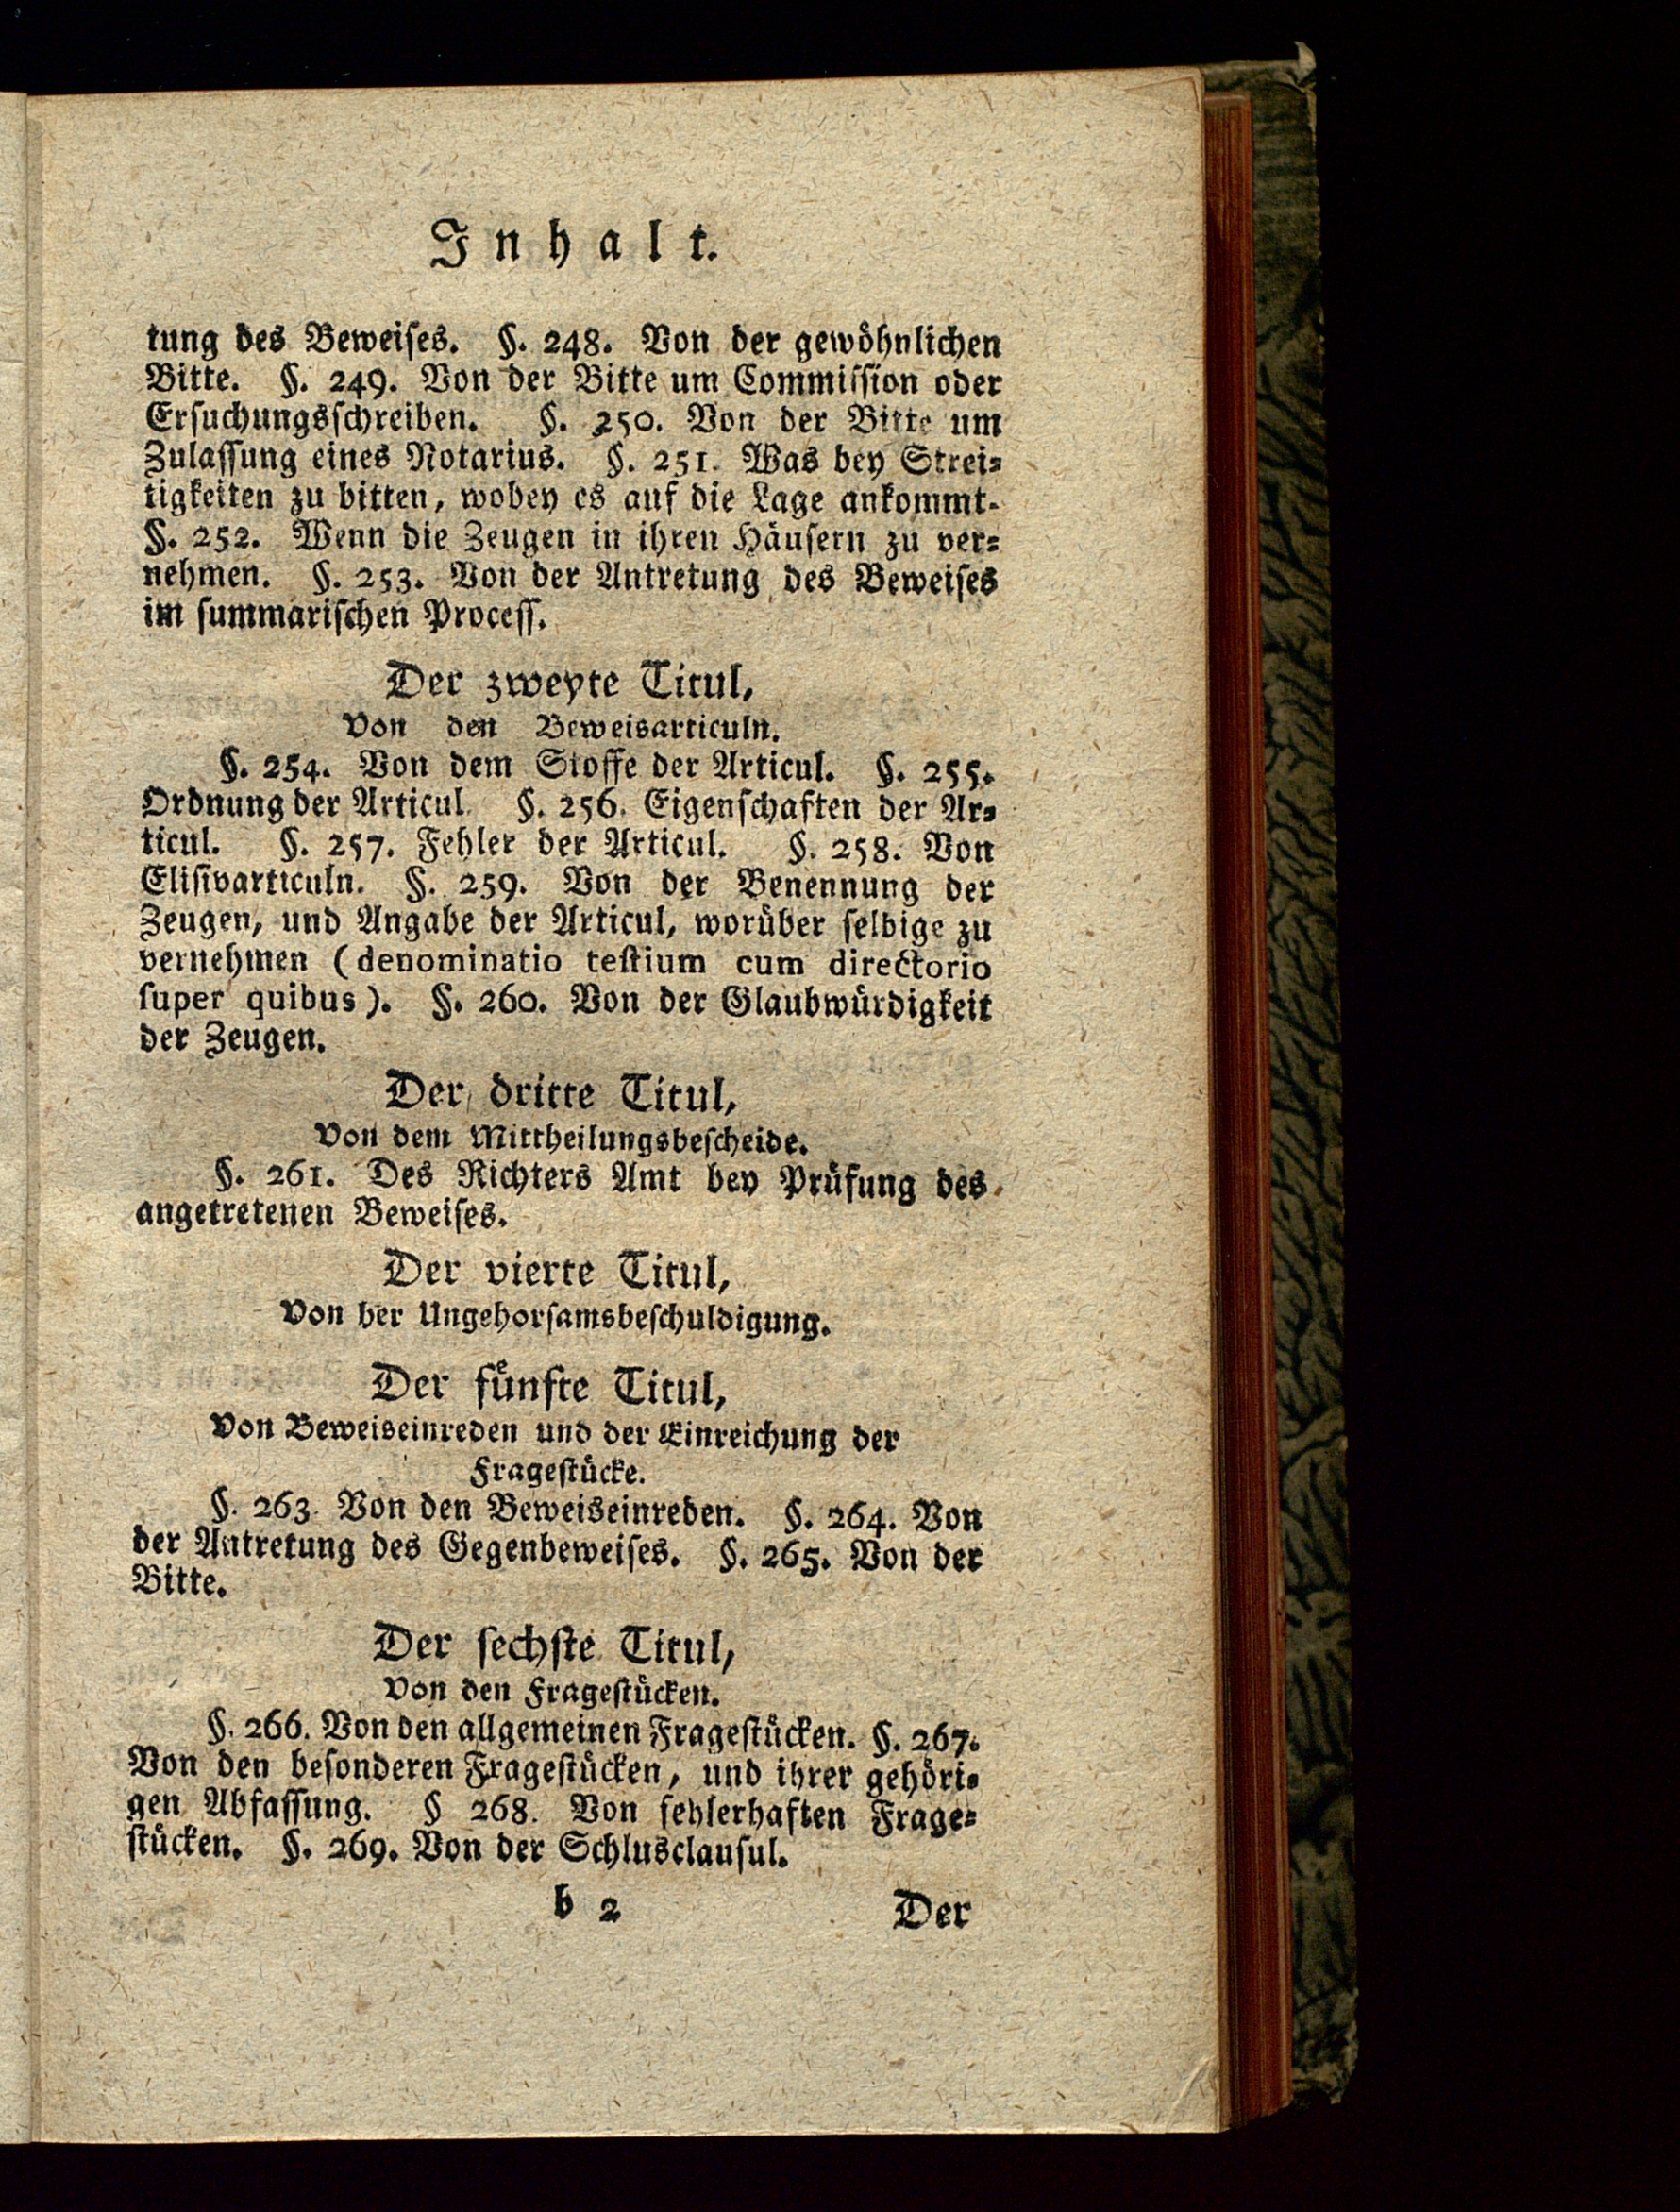 Inhalt.
tung des Beweises. §. 248. Von der gewöhnlichen
Bitte. §. 249. Von der Bitte um Commission oder
Ersuchungsschreiben. §. 250. Von der Bitte um
Zulassung eines Notarius. §. 251. Was bey Strei-
tigkeiten zu bitten, wobey es auf die Lage ankommt.
§. 252. Wenn die Zeugen in ihren Häusern zu ver-
nehmen. §. 253. Von der Antretung des Beweises
im summarischen Process.
Der zweyte Titul,
Von den Beweisarticuln.
§. 254. Von dem Stoffe der Articul. §. 255.
Ordnung der Articul. §. 256. Eigenschaften der Ar-
ticul. §. 257. Fehler der Articul. §. 258. Von
Elisivarticuln. §. 259. Von der Benennung der
Zeugen, und Angabe der Articul, worüber selbige zu
vernehmen (denominatio testium cum directorio
super quibus). §. 260. Von der Glaubwürdigkeit
der Zeugen.
Der dritte Titul,
Von dem Mittheilungsbescheide.
§. 261. Des Richters Amt bey Prüfung des
angetretenen Beweises.
Der vierte Titul,
Von der Ungehorsamsbeschuldigung.
Der fünfte Titul,
Von Beweiseinreden und der Einreichung der
Fragestücke.
§. 263. Von den Beweiseinreden. §. 264. Von
der Antretung des Gegenbeweises. §. 265. Von der
Bitte.
Der sechste Titul,
Von den Fragestücken.
§. 266. Von den allgemeinen Fragestücken. §. 267.
Von den besonderen Fragestücken, und ihrer gehöri-
gen Abfassung. § 268. Von fehlerhaften Frage-
stücken. §. 269. Von der Schlusclausul.
b 2 Der